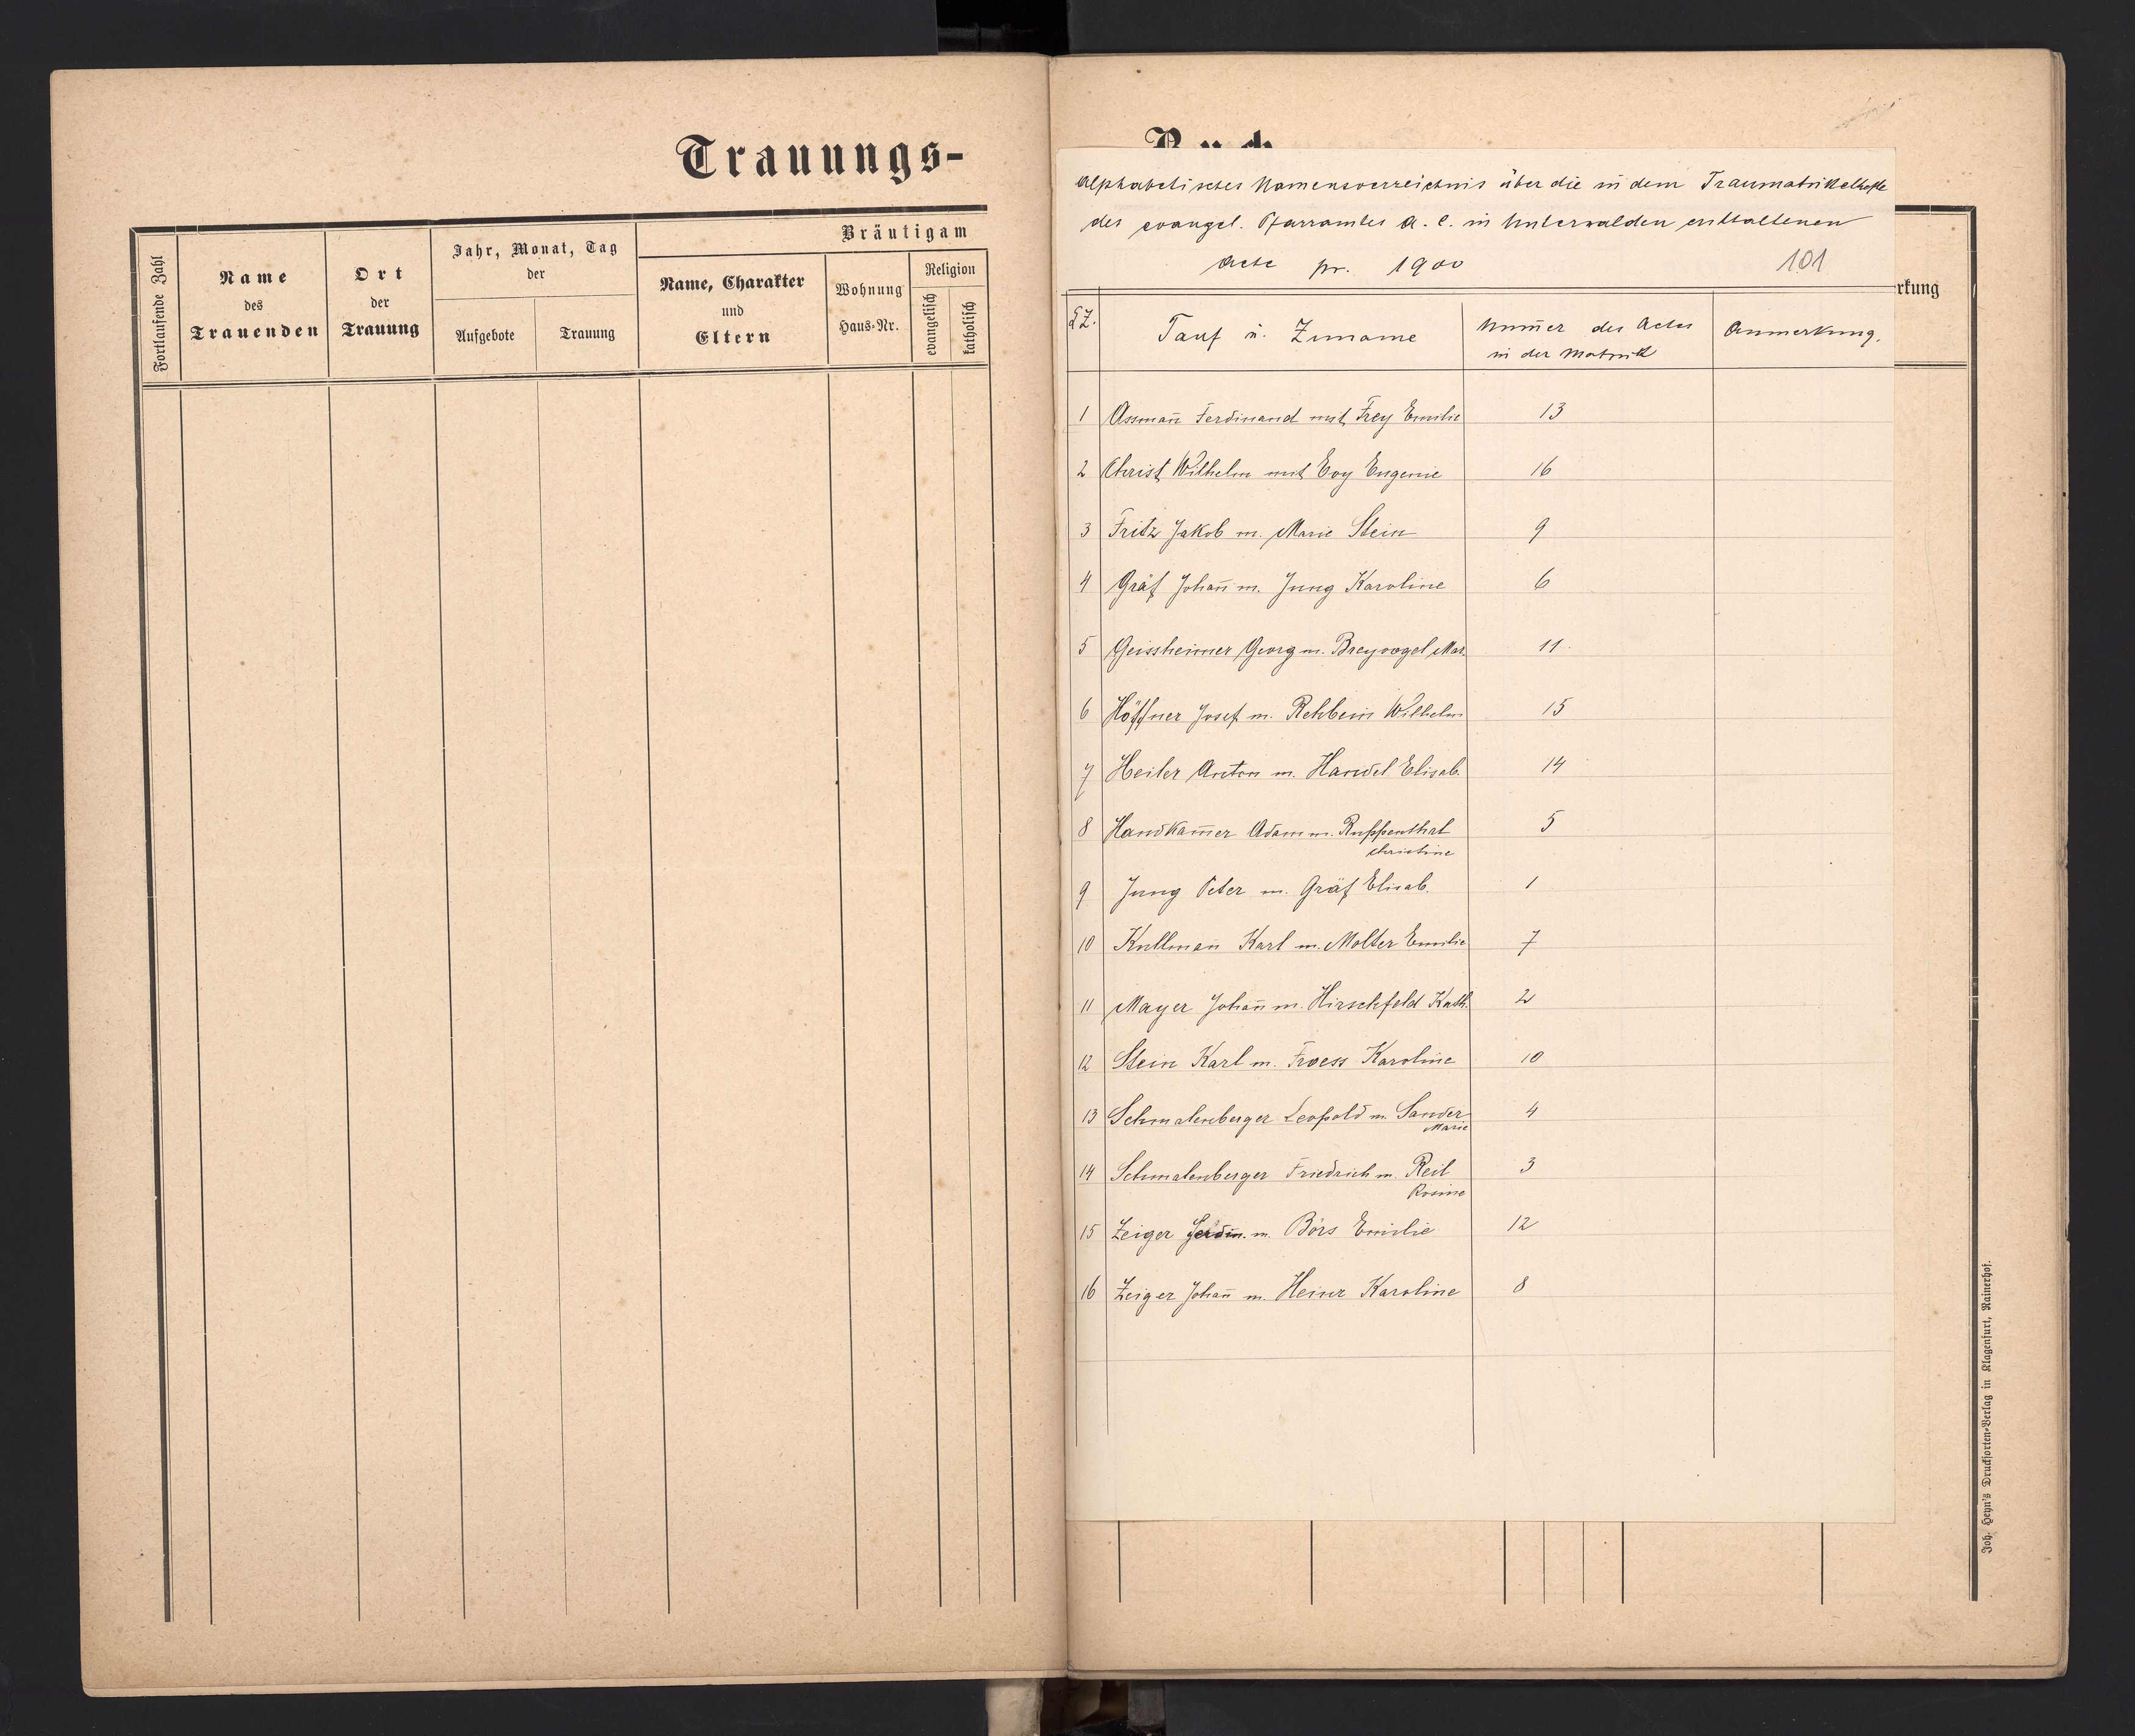 Trauungs-
Fortlaufende Zahl
Name
des
Trauenden
Ort
der
Trauung
Jahr, Monat, Tag
der
Aufgebote
Trauung
Bräutigam
Name, Charakter
und
Eltern
Wohnung
Haus-Nr.
Religion
evangelisch
katholisch
Buch
Alphabetisches Namensverzeichnis über die in dem Traumatrikelhefte
des evangel. Pfarramtes A. C. in Unterwalden enthaltenen
Acte pr. 1900 101
rkung
LZ. Tauf u. Zuname Num̄er des Actes Anmerkung.
in der Matrik
1 Assman̄ Ferdinand mit Frey Emilie 13
2 Christ Wilhelm mit Evy Eugenie 16
3 Fritz Jakob m. Marie Stein 9
4 Gräf Johan̄ m. Jung Karoline 6
5 Geissheimer Georg m. Breyvogel Mar. 11.
6 Höffner Josef m. Rehbein Wilhelm 15
7 Heiler Anton m. Handel Elisab. 14
8 Handkam̄er Adam m. Ruppenthal 5
Christine
9 Jung Peter m. Gräf Elisab. 1
10 Kullman̄ Karl m. Molter Emilie 7
11 Mayer Johan̄ m. Hirschfeld Kath. 2
12 Stein Karl m. Froess Karoline 10
13 Schmalenberger Leopold m. Sander 4
Marie
14 Schmalenberger Friedrich m. Reil 3
Rosine
15 Zeiger Ferdin. m. Börs Emilie 12
16 Zeiger Johan̄ m. Heinz Karoline 8
Joh. Heyn's Drucksorten-Verlag in Klagenfurt, Rainerhof.